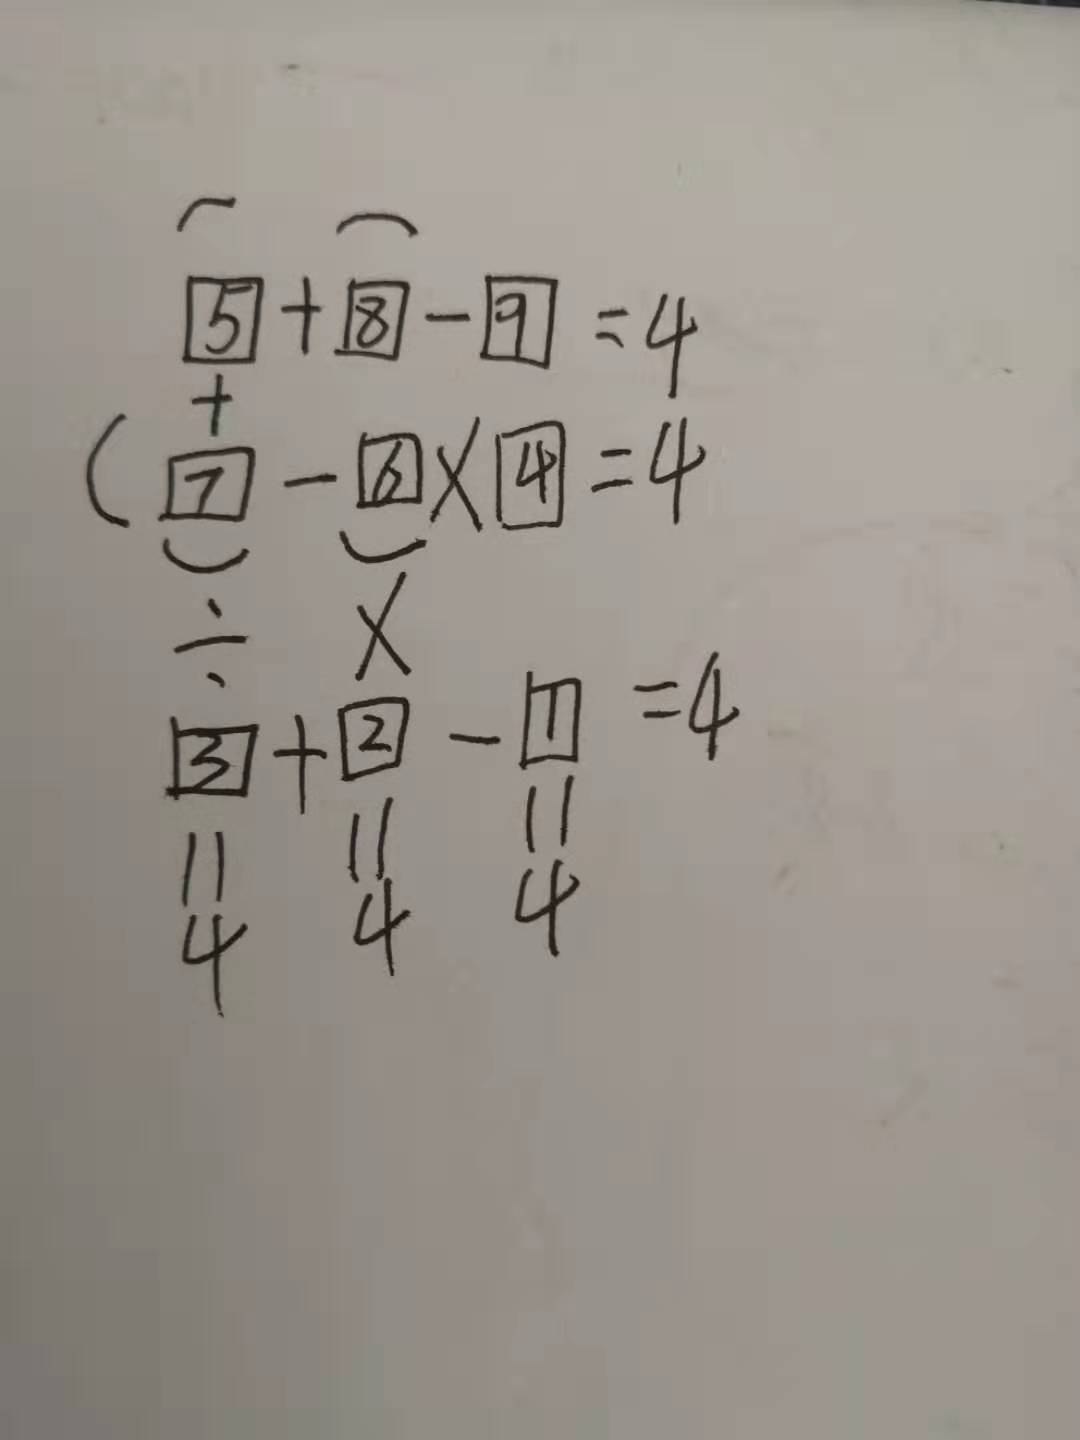 ⌒ ⌒
5 + 8 - 9 = 4
+
( 7 - 6 × 4 = 4
⌣ ⌣
÷ ×
3 + 2 - 1 = 4
|| || ||
4 4 4